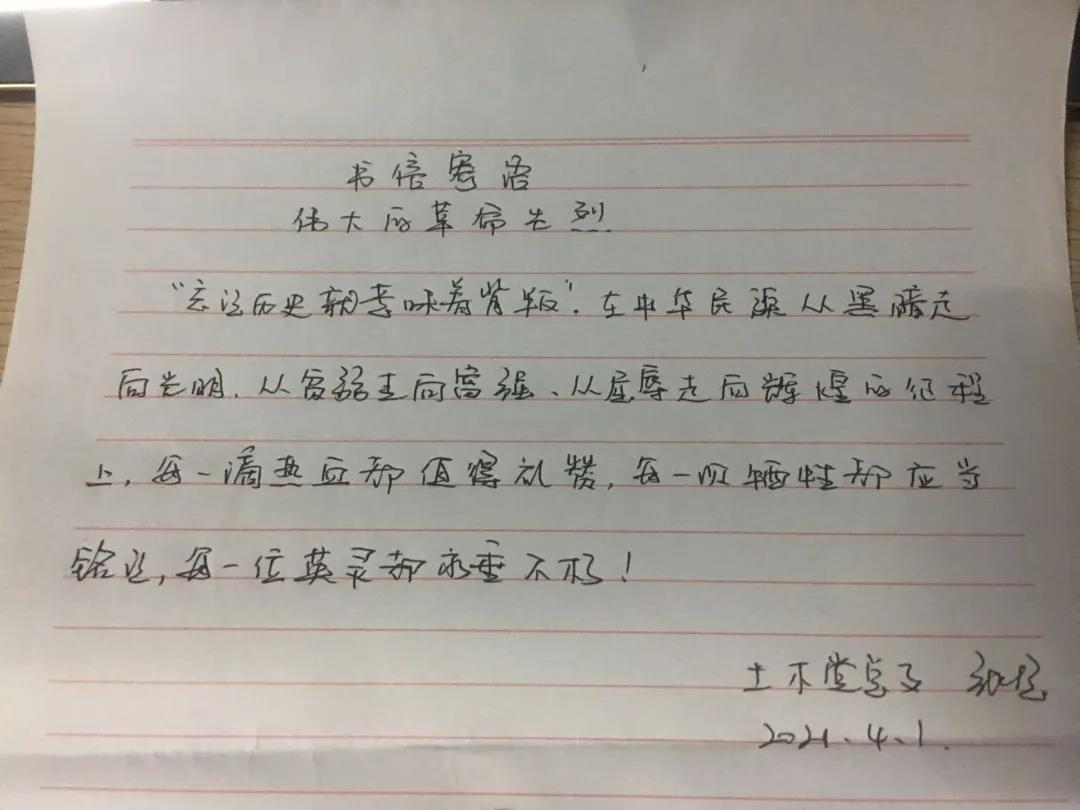 书信寄语
伟大的革命先烈
“忘记历史就意味着背叛”.在中华民族从黑暗走
向光明、从贫弱走向富强、从屈辱走向辉煌的征程
上,每一滴热血都值得礼赞,每一次牺牲都应当
铭记,每一位英灵都永垂不朽!
土木党总支
2021.4.1.